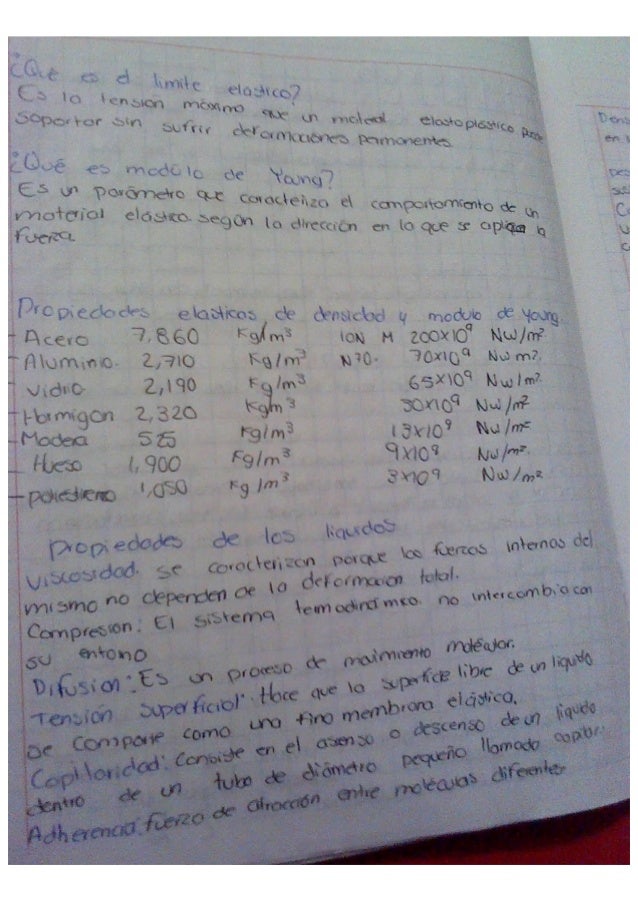 ¿Qué es el limite elastico?
Es la tension maximo que un material elastoplastico
soportar sin sufrir deformaciones permanentes
¿Qué es modulo de Young?
Es un parámetro que caracteriza el comportamiento de un
material elastico según la dirección en la que se aplica la
fuerza
Propiedades elasticas de densidad y modulo de young.
- Acero 7,860 Kg/m³ ION M 200x10⁹ Nw/m²
- Aluminio. 2,710 Kg/m³ N70. 70x10⁹ Nw m².
- vidrio 2,190 Kg/m³ 65x10⁹ Nw/m².
- Hormigon 2,320 Kgm³ 30x10⁹ Nw/m²
- Madera 525 Kg/m³ 13x10⁹ Nw/m²
- Hueso 1,900 Kg/m³ 9x10⁹ Nw/m².
- poliestireno 1,050 Kg/m³ 3x10⁹ Nw/m²
Propiedades de los liquidos
Viscosidad. se caracterizan porque las fuerzas internas del
mismo no dependen de la deformacion total.
Compresion: El sistema termodinamico no intercambia con
su entorno
Difusion: Es un proceso de movimiento molecular.
Tensión superficial: Hace que la superficie libre de un liquido
se comporte como una fina membrana elástica.
Capilaridad: Consiste en el asenso o descenso de un liquido
dentro de un tubo de diámetro pequeño llamado capilar.
Adherencia: fuerza de atracción entre moléculas diferentes
Dens
en